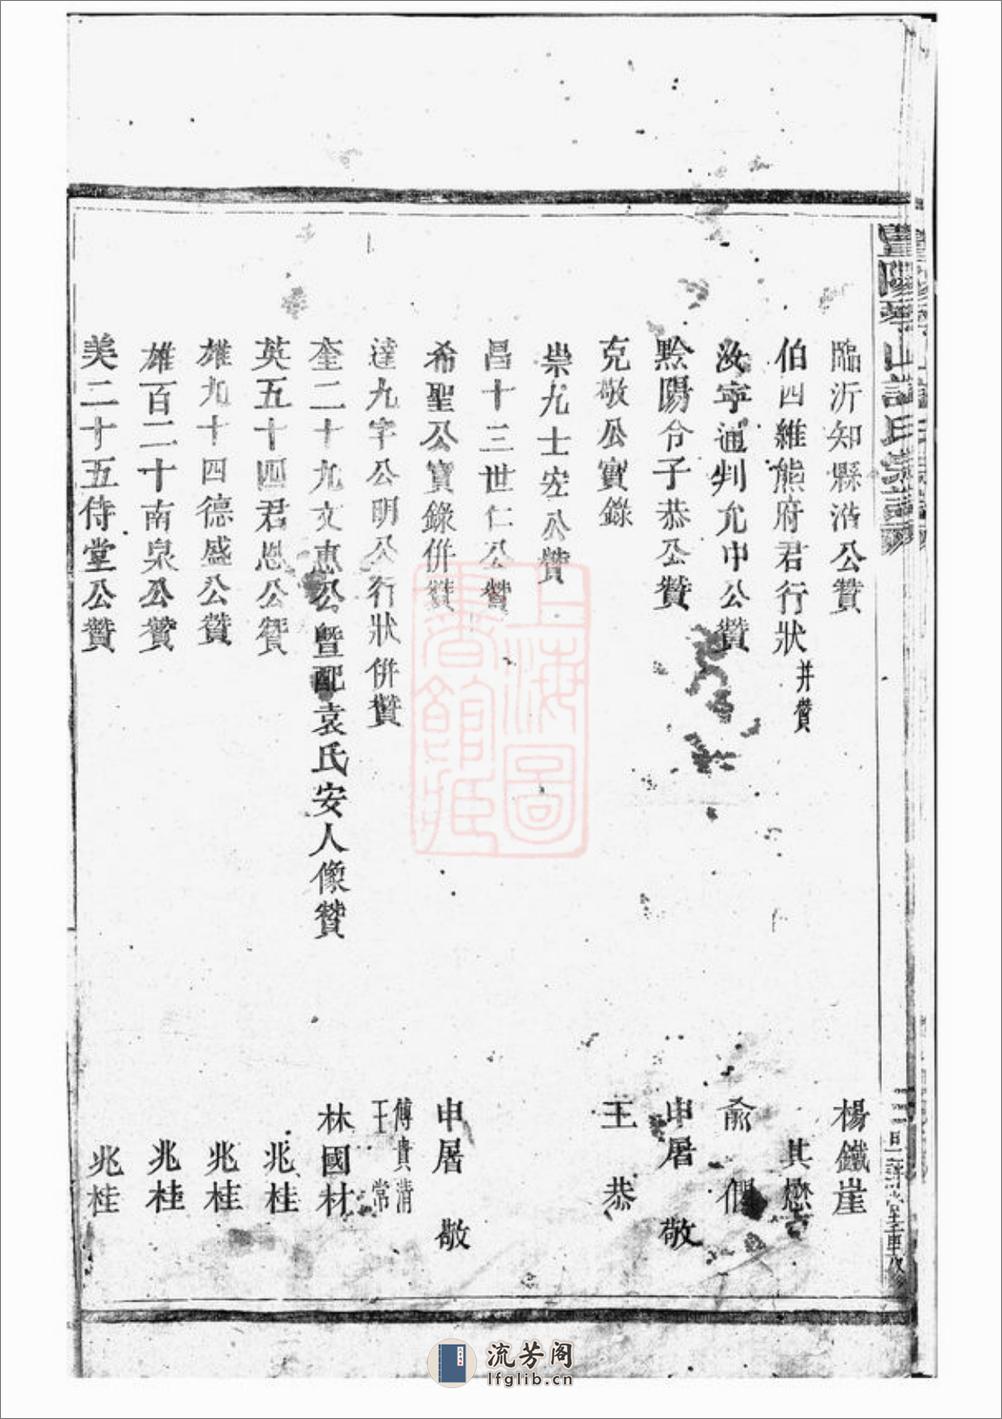 臨沂知縣浩公贊 楊鐵崖
伯四維熊府君行狀 并贊 其懋
汝寧通判允中公贊 俞僩
黔陽令子恭公贊 申屠敬
克敬公實錄 王恭
崇九士安公贊
昌十三世仁公贊
希聖公實錄併贊 申屠敬
達九字公明公行狀併贊 傅貴清 王常
奎二十九文惠公暨配袁氏安人像贊 林國材
英五十四君恩公贊 兆桂
雄九十四德盛公贊 兆桂
雄百二十南泉公贊 兆桂
美二十五侍堂公贊 兆桂
上海圖書館藏
流芳阁
lfglib.cn